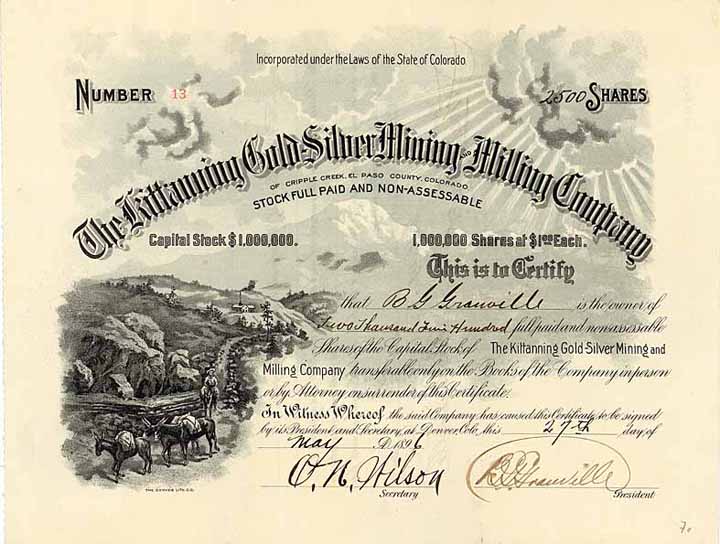 Incorporated under the Laws of the State of Colorado
NUMBER 13 2500 SHARES
The Kittanning Gold-Silver Mining and Milling Company
OF CRIPPLE CREEK, EL PASO COUNTY, COLORADO
STOCK FULL PAID AND NON-ASSESSABLE
Capital Stock $1,000,000. 1,000,000 Shares at $1.00 Each.
This is to Certify
that B G Granville is the owner of
Two Thousand Five Hundred full paid and nonassessable
Shares of the Capital Stock of The Kittanning Gold-Silver Mining and
Milling Company transferable only on the Books of the Company in person
or by Attorney on surrender of this Certificate.
In Witness Whereof the said Company has caused this Certificate to be signed
by its President and Secretary, at Denver, Colo. this 27th day of
May A.D. 1896
O. N. Wilson B G Granville
Secretary President
THE DENVER LITH. CO.
7.